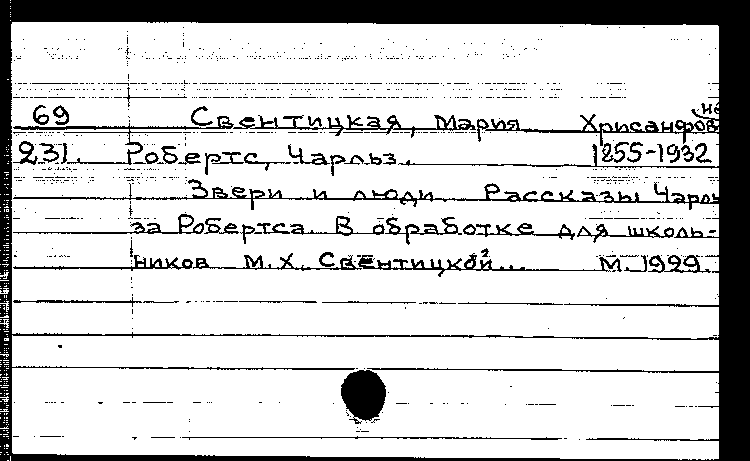 69 Свентицкая, Мария Хрисанфовна
231. Робертс, Чарльз. 1855-1932
Звери и люди. Рассказы Чарль-
за Робертса. В обработке для школь-
ников М.Х. Свентицкой... М. 1929.